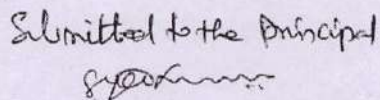 Submitted to the Principal